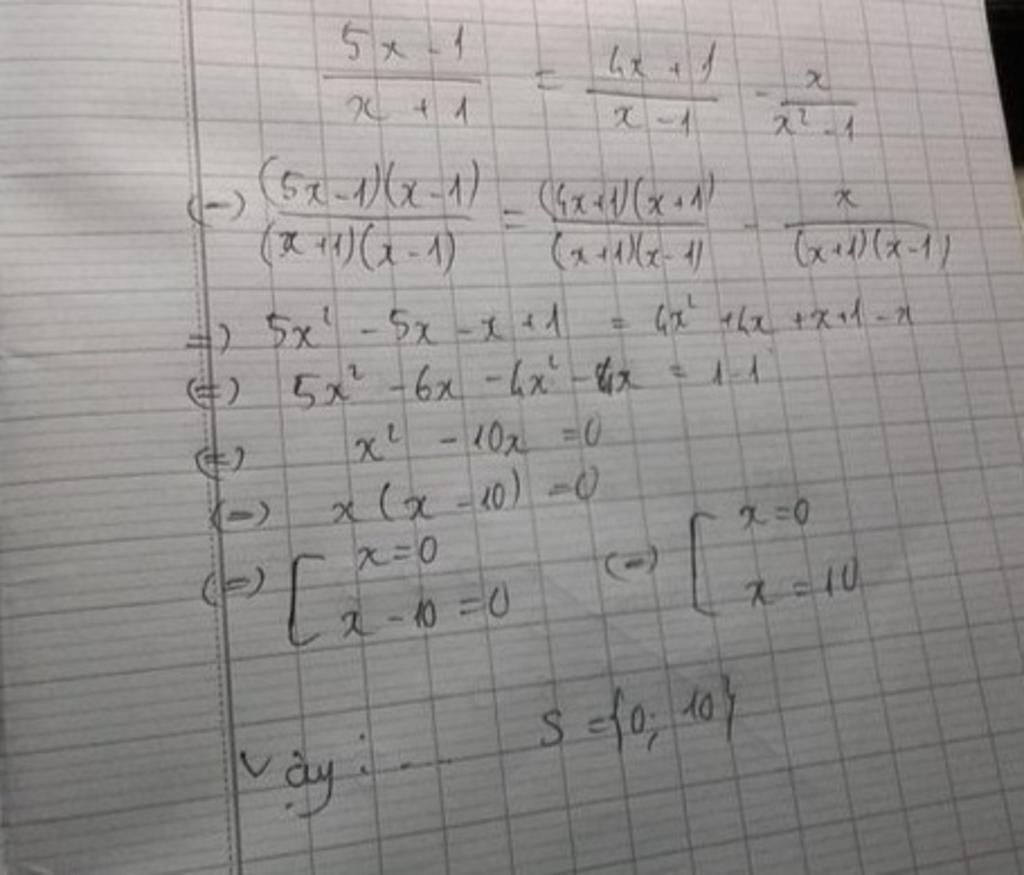 (5x - 1)/(x + 1) = (4x + 1)/(x - 1) - x/(x² - 1)
(=) (5x - 1)(x - 1)/(x + 1)(x - 1) = (4x+1)(x+1)/(x+1)(x-1) - x/(x+1)(x-1)
=) 5x² - 5x - x + 1 = 4x² + 4x + x + 1 - x
(=) 5x² - 6x - 4x² - 4x = 1 - 1
(=) x² - 10x = 0
(=) x (x - 10) = 0
(=) [ x = 0 (=) [ x = 0
x - 10 = 0 x = 10
Vậy : --- S = {0; 10}